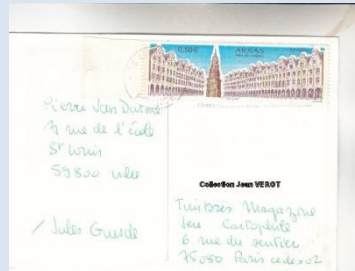 0,50€
ARRAS
Pierre Van
rue de l'école
St Louis
59800
/ Jules Guesde
Collection Jean VEROT
Timbres Magazine
Jeu Cartophile
6 rue du sentier
75080 Paris cedex 02